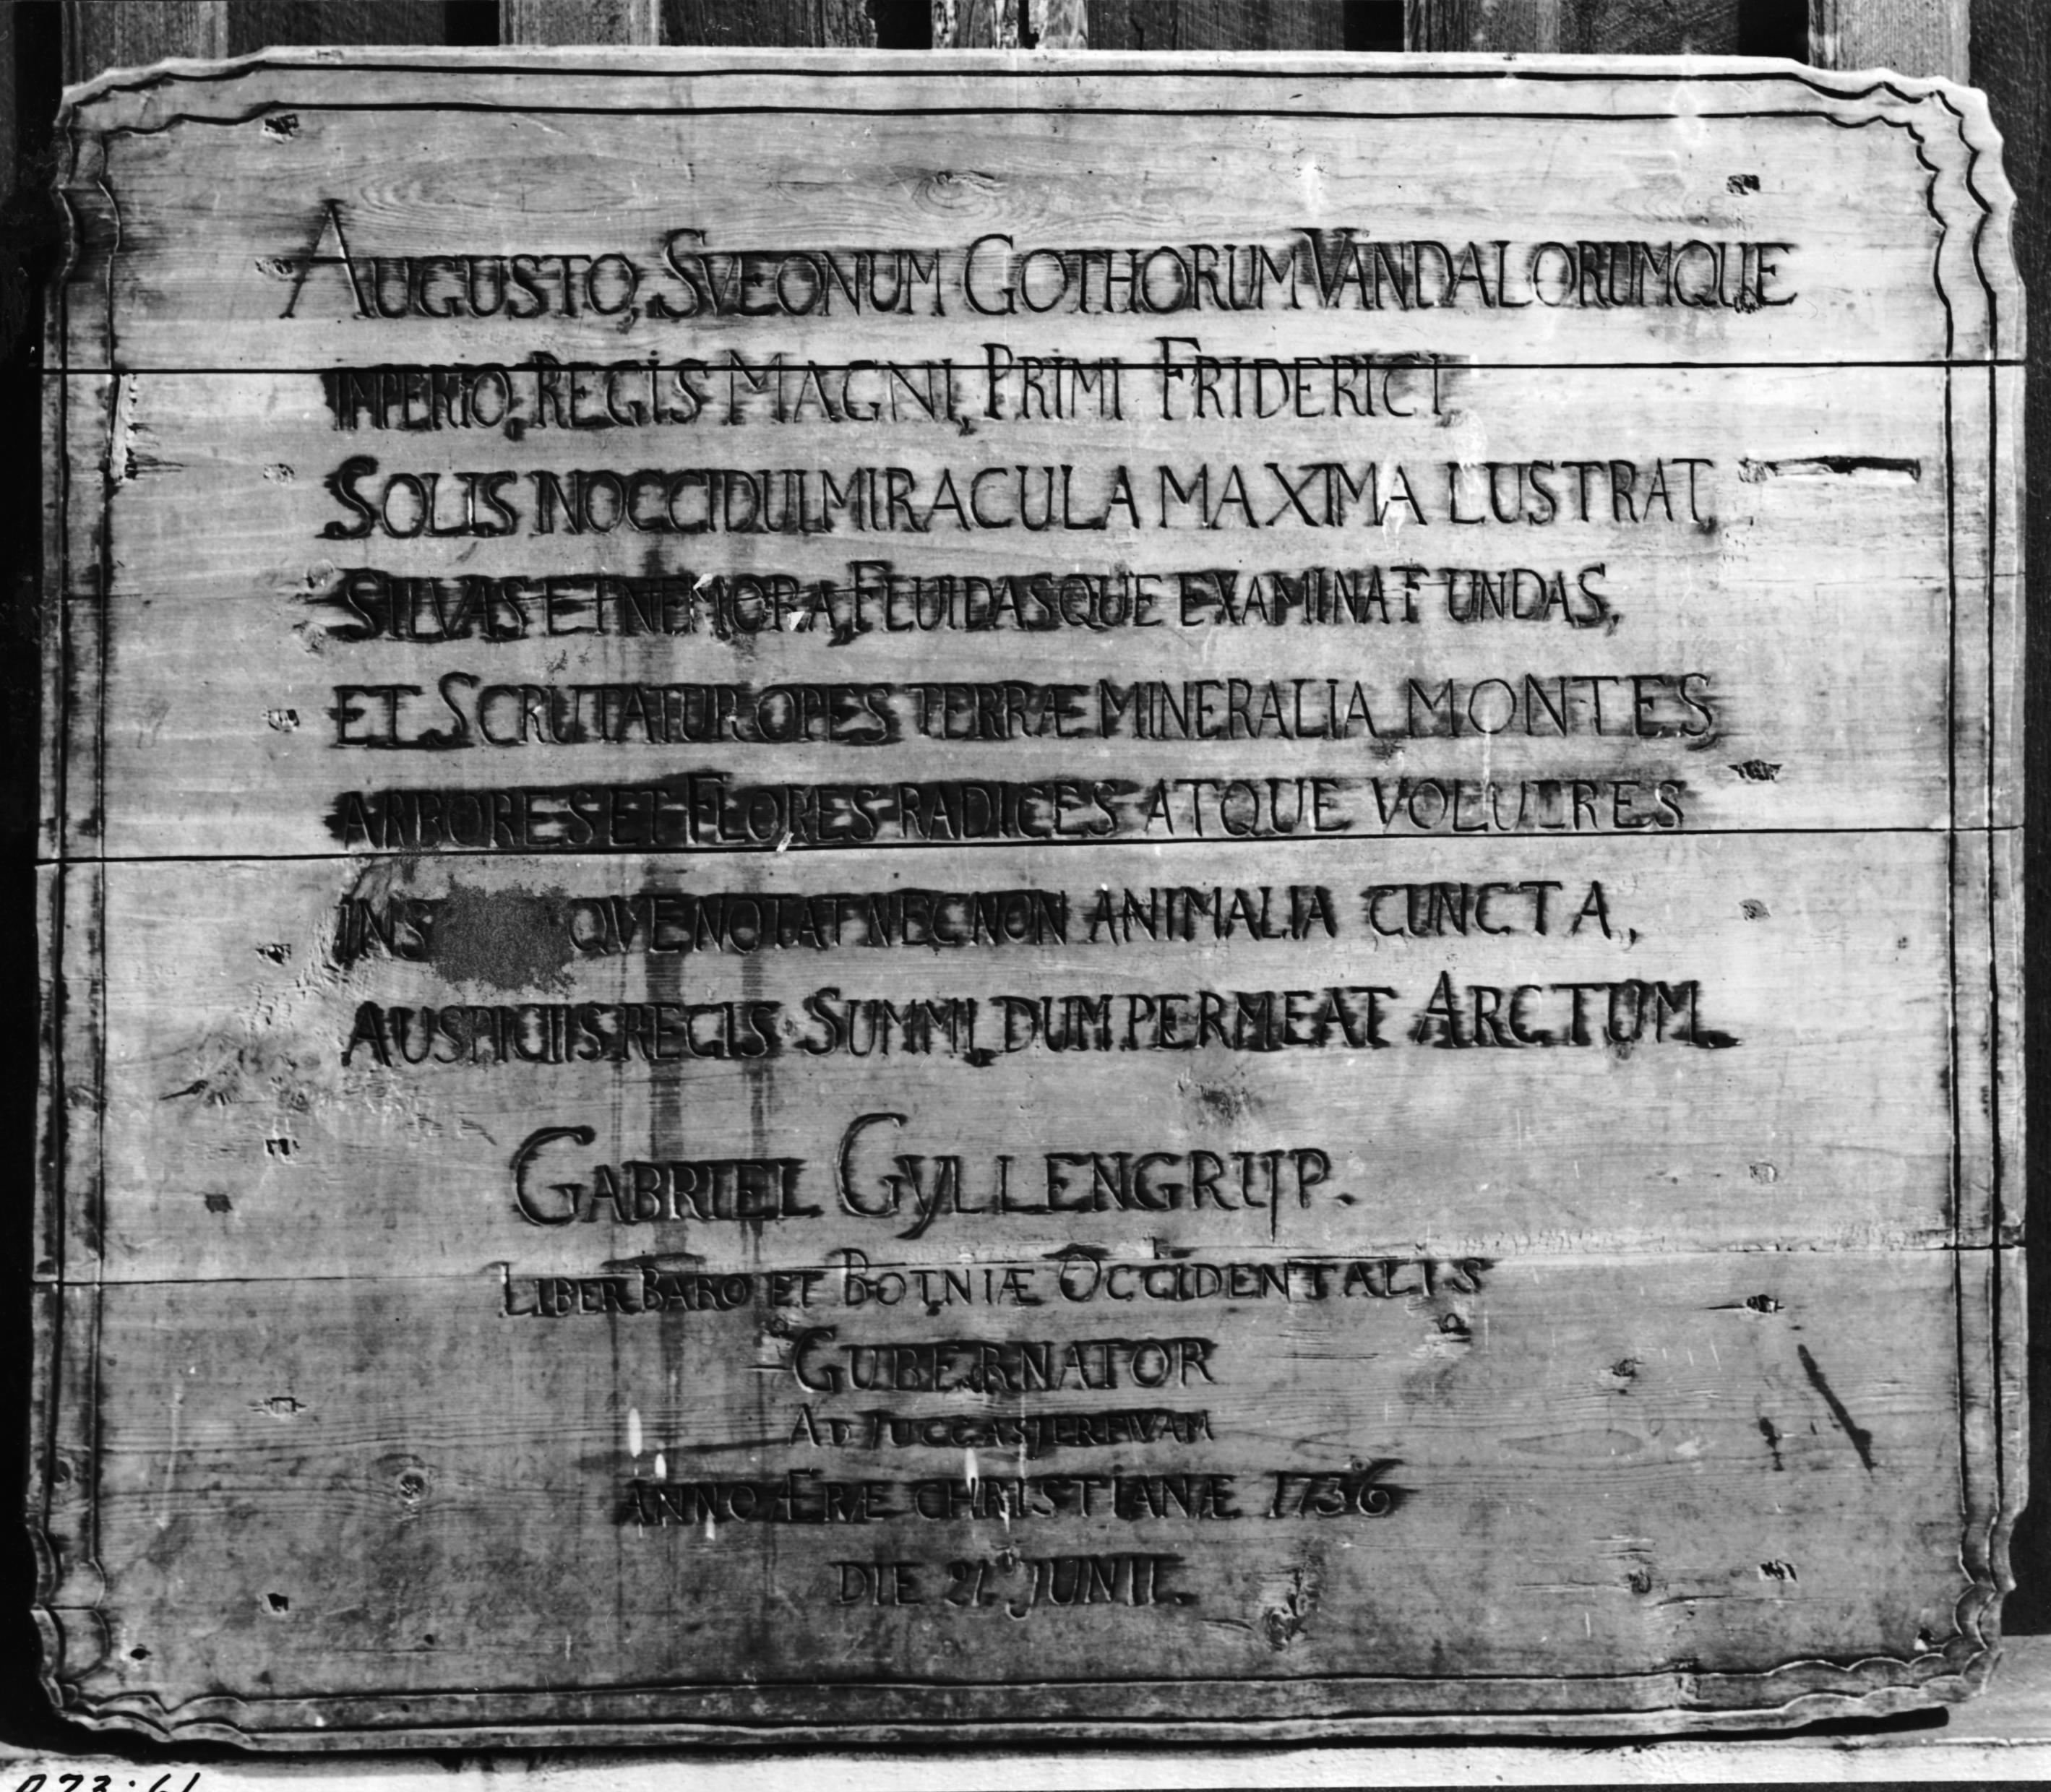 AUGUSTO, SVEONUM GOTHORUM VANDALORUMQUE
IMPERIO, REGIS MAGNI, PRIMI FRIDERICI,
SOLIS INOCCIDUI MIRACULA MAXIMA LUSTRAT,
SILVAS ET NEMORA, FLUIDASQUE EXAMINAT UNDAS,
ET SCRUTATUR OPES TERRÆ MINERALIA MONTES
ARBORES ET FLORES RADICES ATQUE VOLUCRES
INS QVE NOTAT NEC NON ANIMALIA CUNCTA,
AUSPICIIS REGIS SUMMI, DUM PERMEAT ARCTUM.
GABRIEL GYLLENGRIJP.
LIBER BARO ET BOTNIÆ OCCIDENTALIS
GUBERNATOR
AD JUCCASJERFWAM
ANNO ÆRÆ CHRISTIANÆ 1736
DIE 21. JUNII.